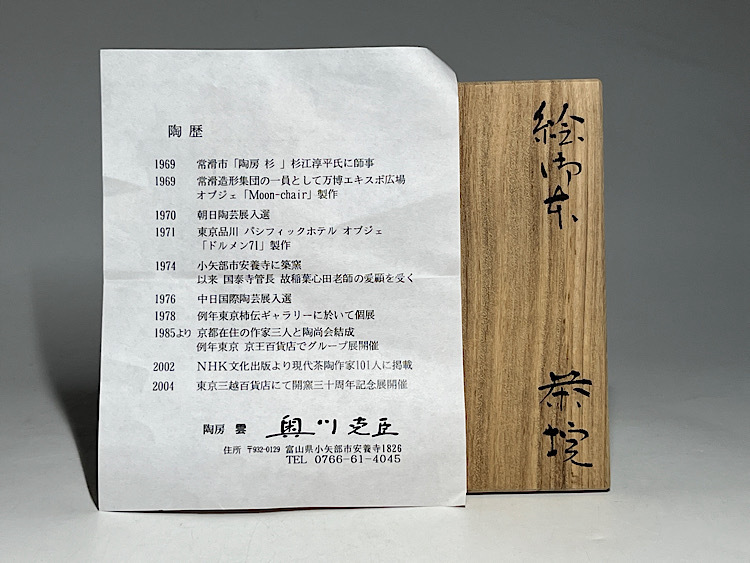 陶歴
1969 常滑市「陶房 杉 」杉江淳平氏に師事
1969 常滑造形集団の一員として万博エキスポ広場
オブジェ「Moon-chair」製作
1970 朝日陶芸展入選
1971 東京品川 パシフィックホテル オブジェ
「ドルメン71」製作
1974 小矢部市安養寺に築窯
以来 国泰寺管長 故稲葉心田老師の愛顧を受く
1976 中日国際陶芸展入選
1978 例年東京柿伝ギャラリーに於いて個展
1985より 京都在住の作家三人と陶尚会結成
例年東京 京王百貨店でグループ展開催
2002 NHK文化出版より現代茶陶作家101人に掲載
2004 東京三越百貨店にて開窯三十周年記念展開催
陶房 雲 奥川克臣
住所 〒932-0129 富山県小矢部市安養寺1826
TEL 0766-61-4045
絵御本
茶埦